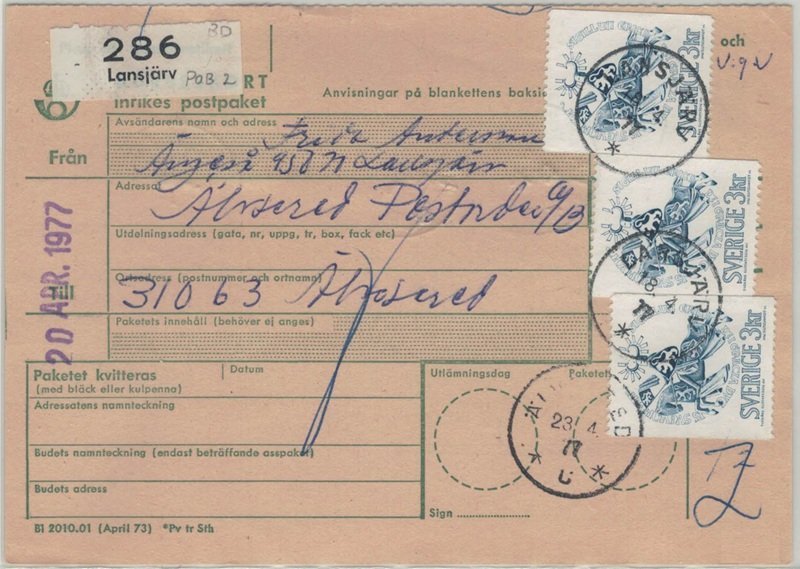 BD
286
Lansjärv PoB 2
RT
Inrikes postpaket
Anvisningar på blankettens baksi
och
Avsändarens namn och adress
Från
Frida Andersson
Ängeså 950 71 Lansjärv
Adressat
Älvsered Postorder AB
Utdelningsadress (gata, nr, uppg, tr, box, fack etc)
Till
Ortsadress (postnummer och ortnamn)
310 63 Älvsered
Paketets innehåll (behöver ej anges)
20 APR. 1977
SVERIGE 3kr
SVERIGE 3kr
SVERIGE 3kr
Paketet kvitteras
(med bläck eller kulpenna)
Datum
Utlämningsdag
Pakete
Adressatens namnteckning
Budets namnteckning (endast beträffande asspaket)
Budets adress
23. 4.
77
Sign
Bl 2010.01 (April 73) *Pv tr Sth